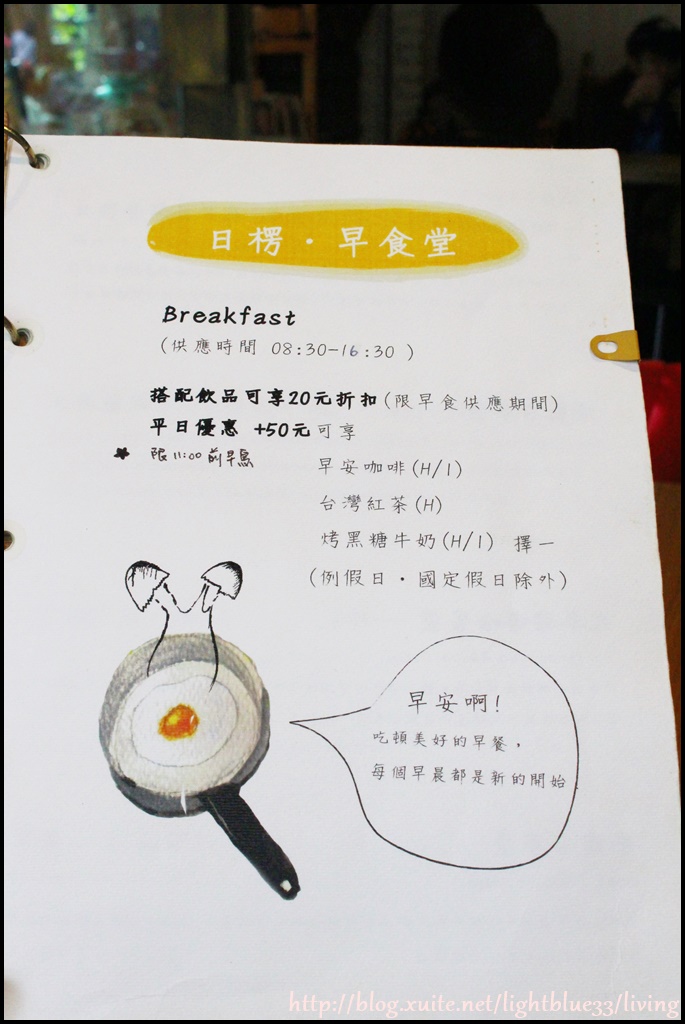 日楞·早食堂
Breakfast
(供應時間 08:30-16:30 )
搭配飲品可享20元折扣(限早食供應期間)
平日優惠 +50元可享
限11:00前早鳥
早安咖啡(H/I)
台灣紅茶(H)
烤黑糖牛奶(H/I) 擇一
(例假日·國定假日除外)
早安啊!
吃頓美好的早餐，
每個早晨都是新的開始
http://blog.xuite.net/lightblue33/living